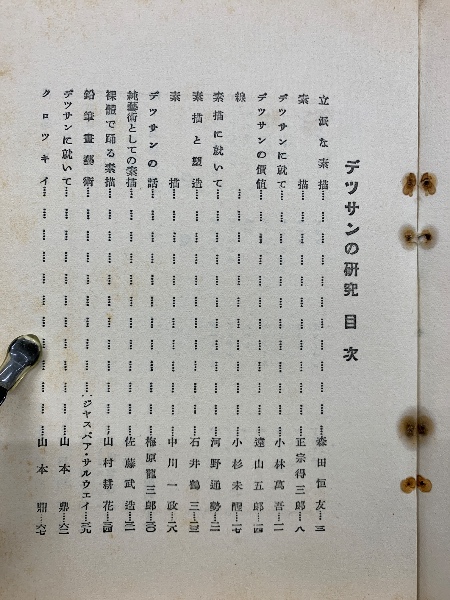 デツサンの研究 目次
立派な素描 森田恒友 三
素描 正宗得三郎 八
デツサンに就て 小林萬吾 一一
デツサンの價値 遠山五郎 一四
線 小杉未醒 一七
素描に就いて 河野通勢 二一
素描と塑造 石井鶴三
素描 中川一政 二八
デツサンの話 梅原龍三郎 三〇
純藝術としての素描 佐藤武造
裸體で踊る素描 山村耕花
鉛筆畫藝術 ジヤスパア・サルウエイ
デツサンに就いて 山本鼎 六二
クロツキイ 山本鼎 六七